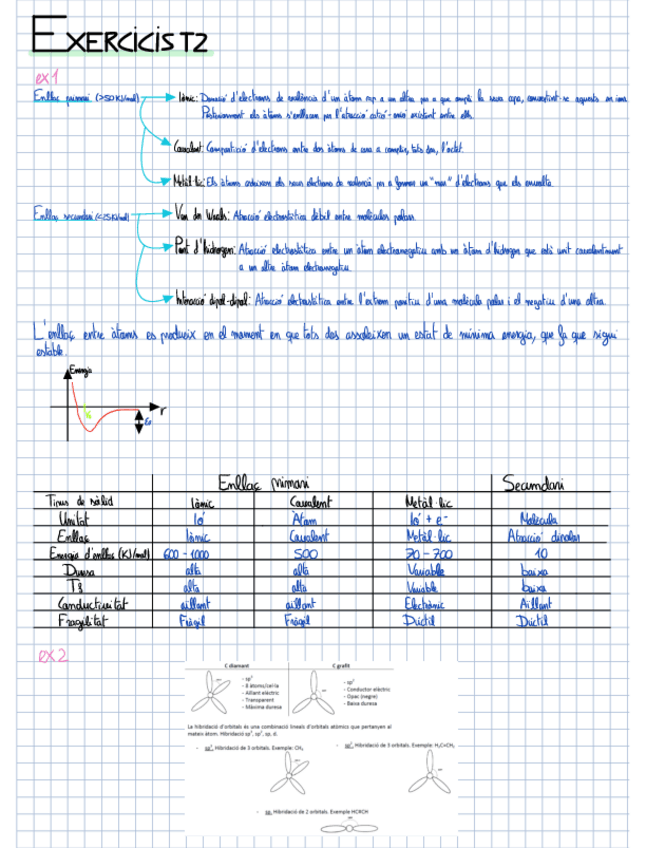 EXERCICIS T2
ex1
Enllaç primari (>50KJ/mol)
Iònic: Donació d'electrons de valència d'un àtom cap a un altre per a que ompli la seva capa, convertint-se aquests en ions
Posteriorment els àtoms s'enllacen per l'atracció catió-anió existent entre ells.
Covalent: Compartició d'electrons entre dos àtoms de cara a complir, tots dos, l'octet.
Metàl·lic: Els àtoms cedeixen els seus electrons de valència per a formar un "mar" d'electrons que els envolta.
Enllaç secundari (<25KJ/mol)
Van der Waals: Atracció electrostàtica dèbil entre molècules polars.
Pont d'hidrogen: Atracció electrostàtica entre un àtom electronegatiu amb un àtom d'hidrogen que està unit covalentment
a un altre àtom electronegatiu.
Interacció dipol-dipol: Atracció electrostàtica entre l'extrem positiu d'una molècula polar i el negatiu d'una altra.
L'enllaç entre àtoms es produeix en el moment en que tots dos assoleixen un estat de mínima energia, que fa que sigui
estable.
Energia
r
Enllaç primari Secundari
Tipus de sòlid Iònic Covalent Metàl·lic
Unitat Ió Àtom Ió + e- Molècula
Enllaç Iònic Covalent Metàl·lic Atracció dipolar
Energia d'enllaç (KJ/mol) 600-1000 500 70-700 10
Duresa alta alta Variable baixa
Tf alta alta Variable baixa
Conductivitat aïllant aïllant Electrònic Aïllant
Fragilitat Fràgil Fràgil Dúctil Dúctil
ex2
C diamant C grafit
- sp³
- 8 àtoms/cel·la
- Aïllant elèctric
- Transparent
- Màxima duresa
- sp²
- Conductor elèctric
- Opac (negre)
- Baixa duresa
La hibridació d'orbitals és una combinació lineals d'orbitals atòmics que pertanyen al
mateix àtom. Hibridació sp³, sp², sp, d.
- sp³. Hibridació de 3 orbitals. Exemple: CH₄
- sp². Hibridació de 3 orbitals. Exemple: H₂C=CH₂
- sp. Hibridació de 2 orbitals. Exemple HCΞCH